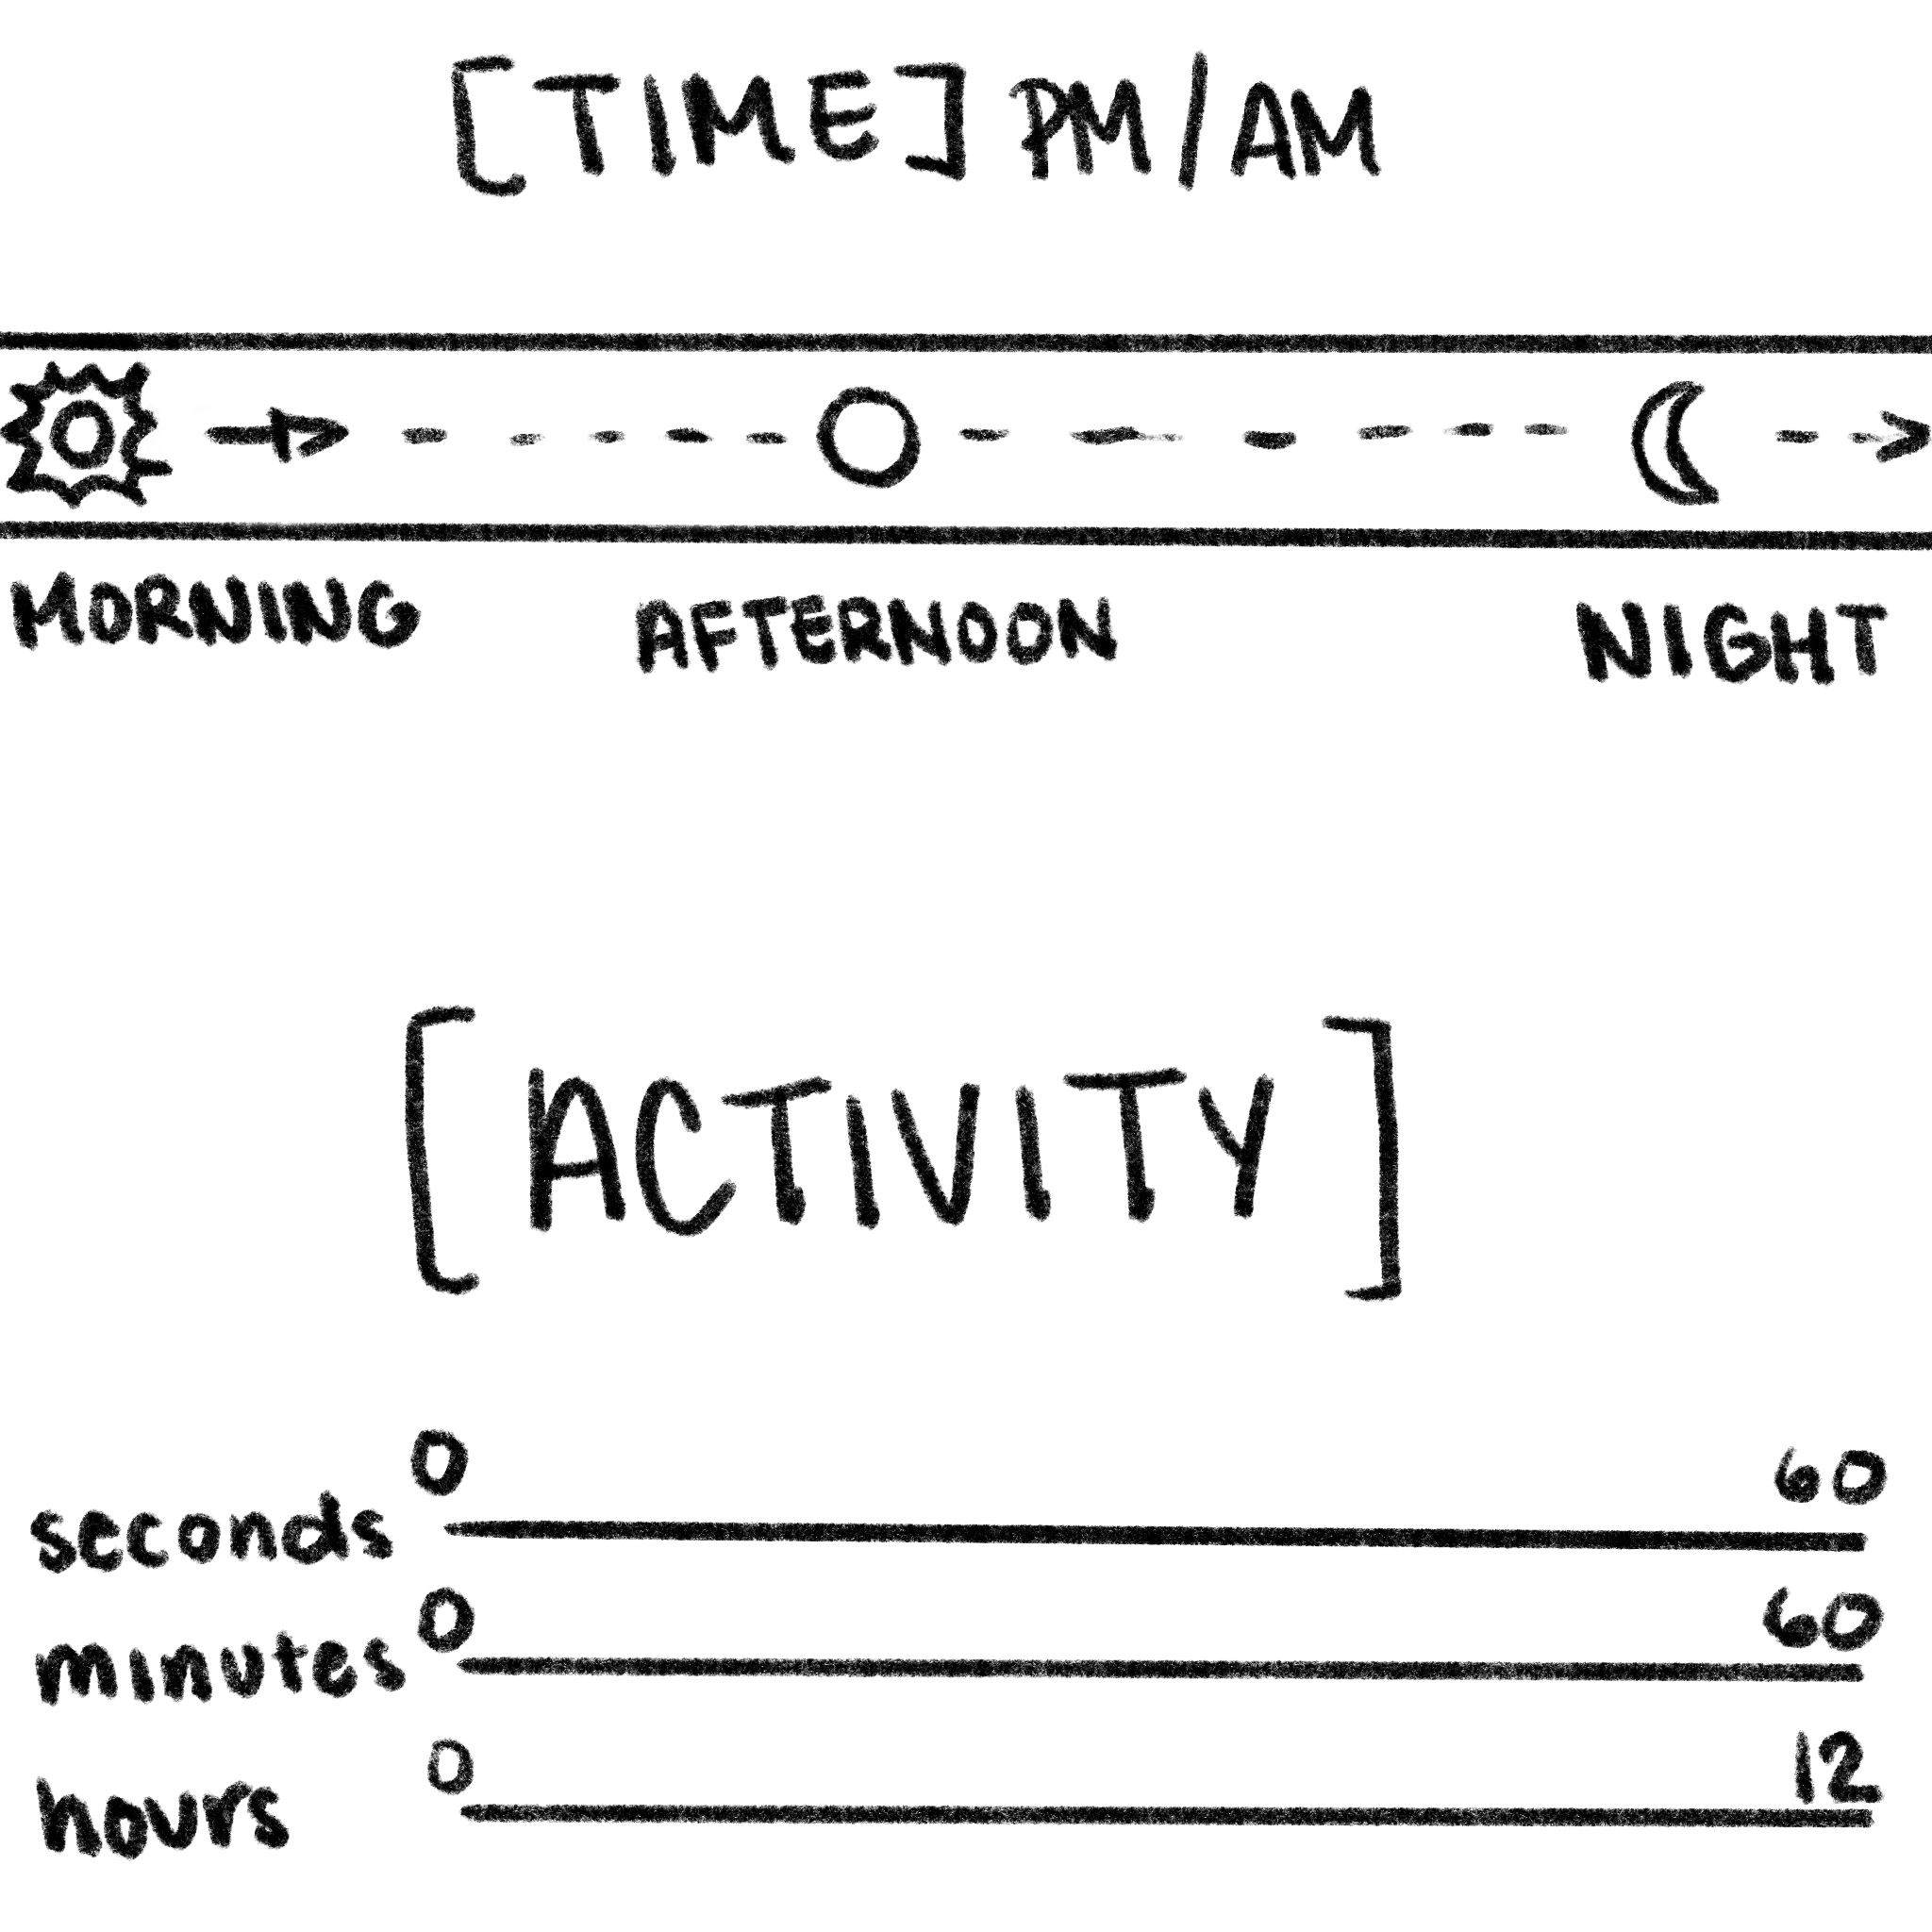 [TIME] PM/AM
MORNING AFTERNOON NIGHT
[ACTIVITY]
0 60
seconds
0 60
minutes
0 12
hours